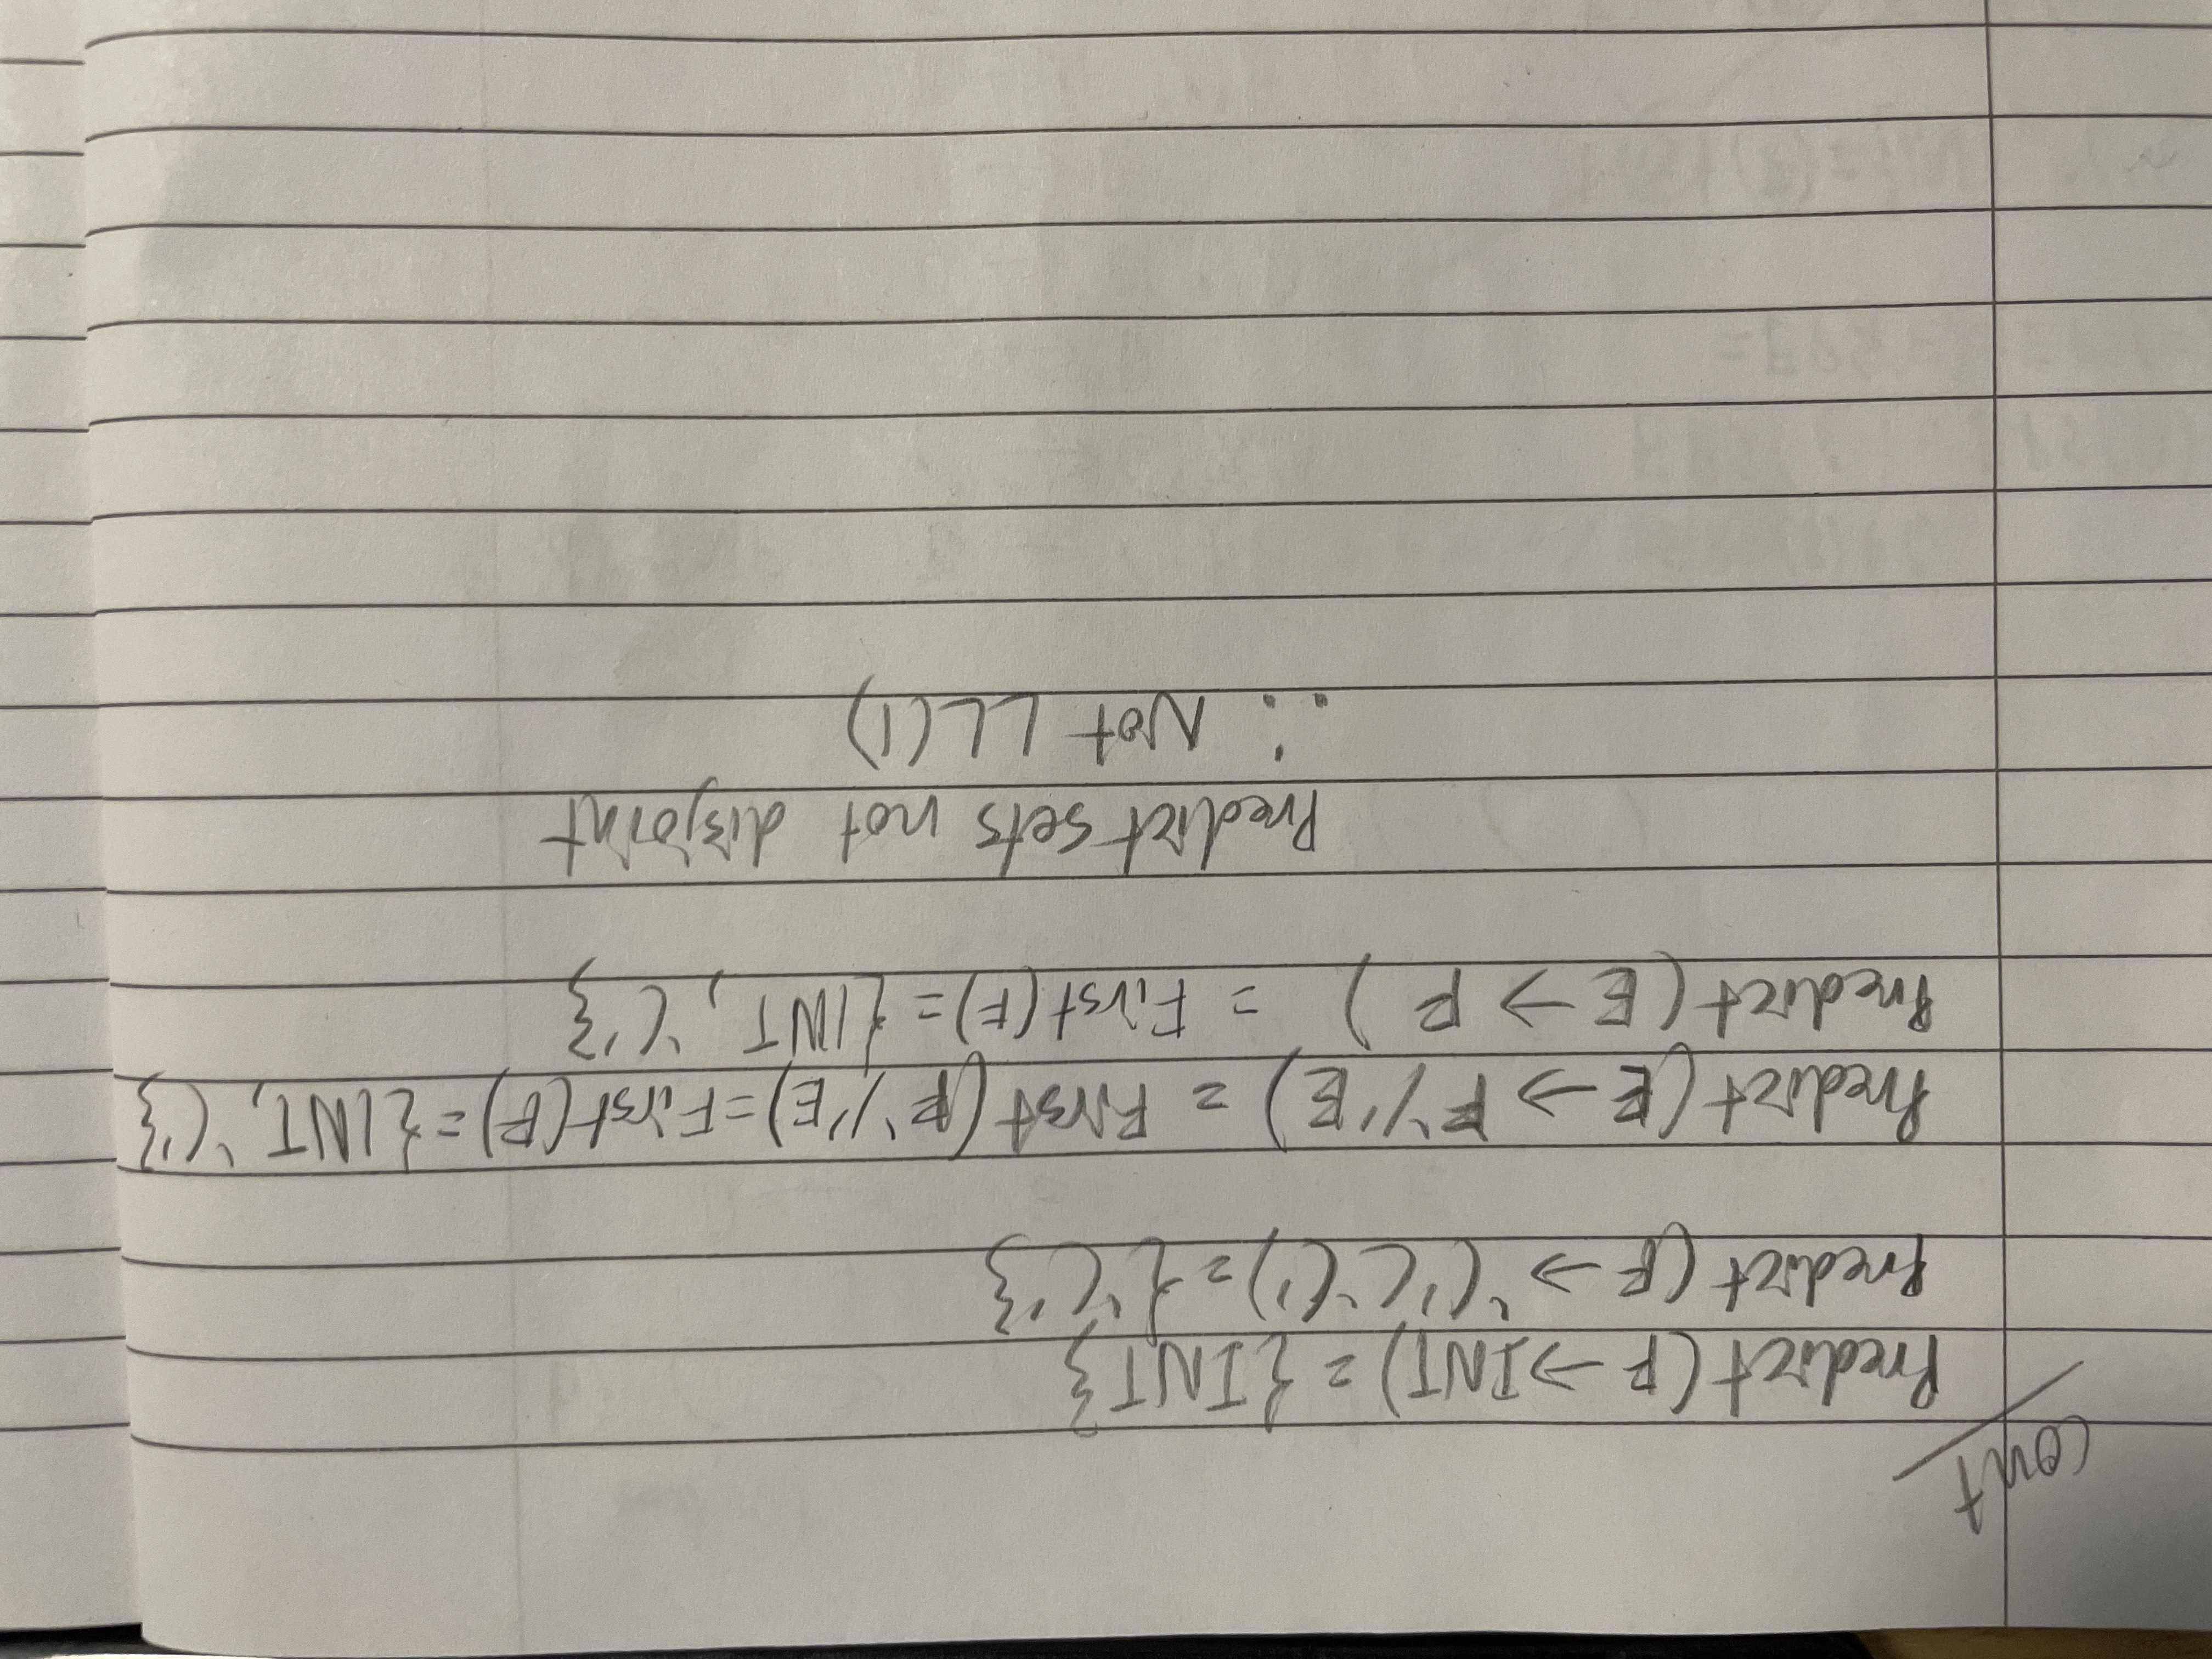 cont
Predict (F → INT) = {INT}
Predict (F → '(' C '(') = {'('}
Predict (E → F '/' E) = First (F '/' E) = First (F) = {INT, '('}
Predict ( E → F ) = First (F) = {INT, '('}
Predict sets not disjoint
∴ Not LL(1)